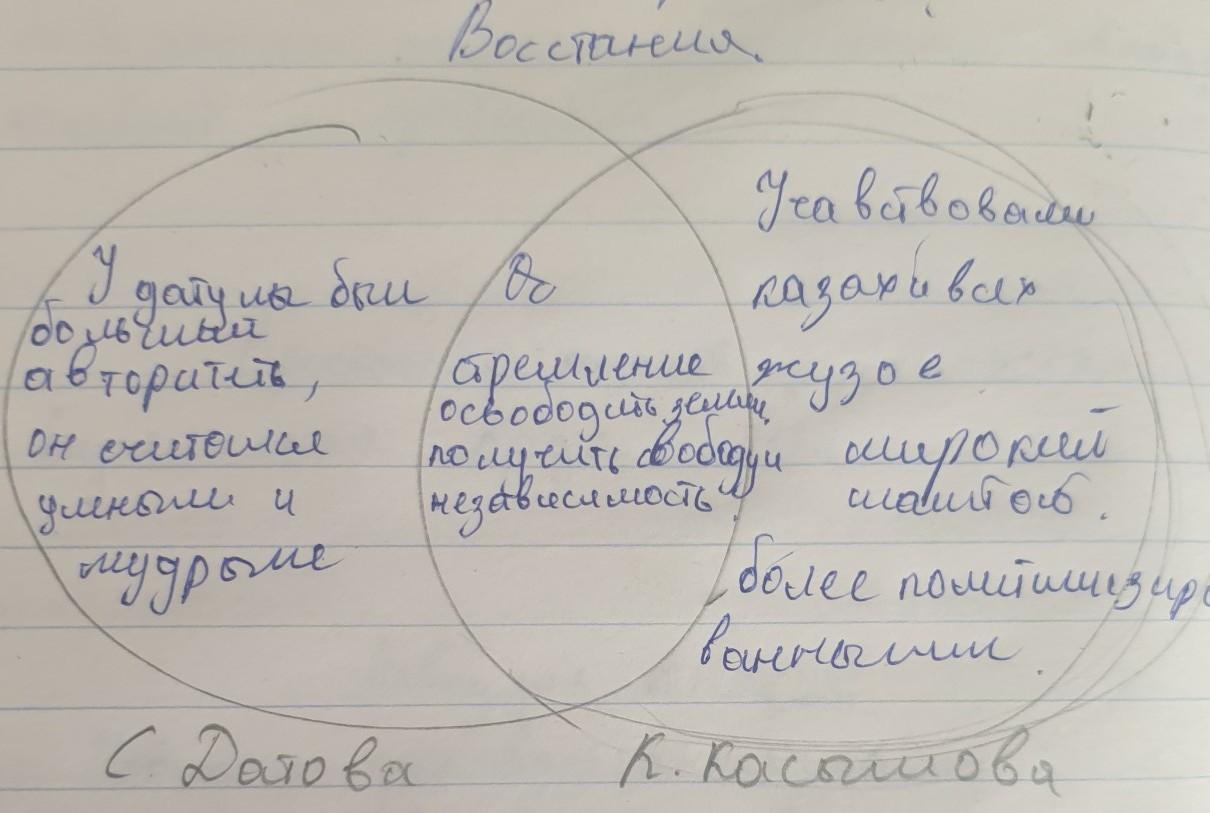 Восстания.
У датулы был
большый
авторитеть,
он считался
умным и
мудрыме
стремление
освободить земли,
получить свободу и
независимость.
Учавствовали
казахи в всх
жузов
широкий
маштоб.
более политилизиро
ванными.
С. Датова
К. Касымова